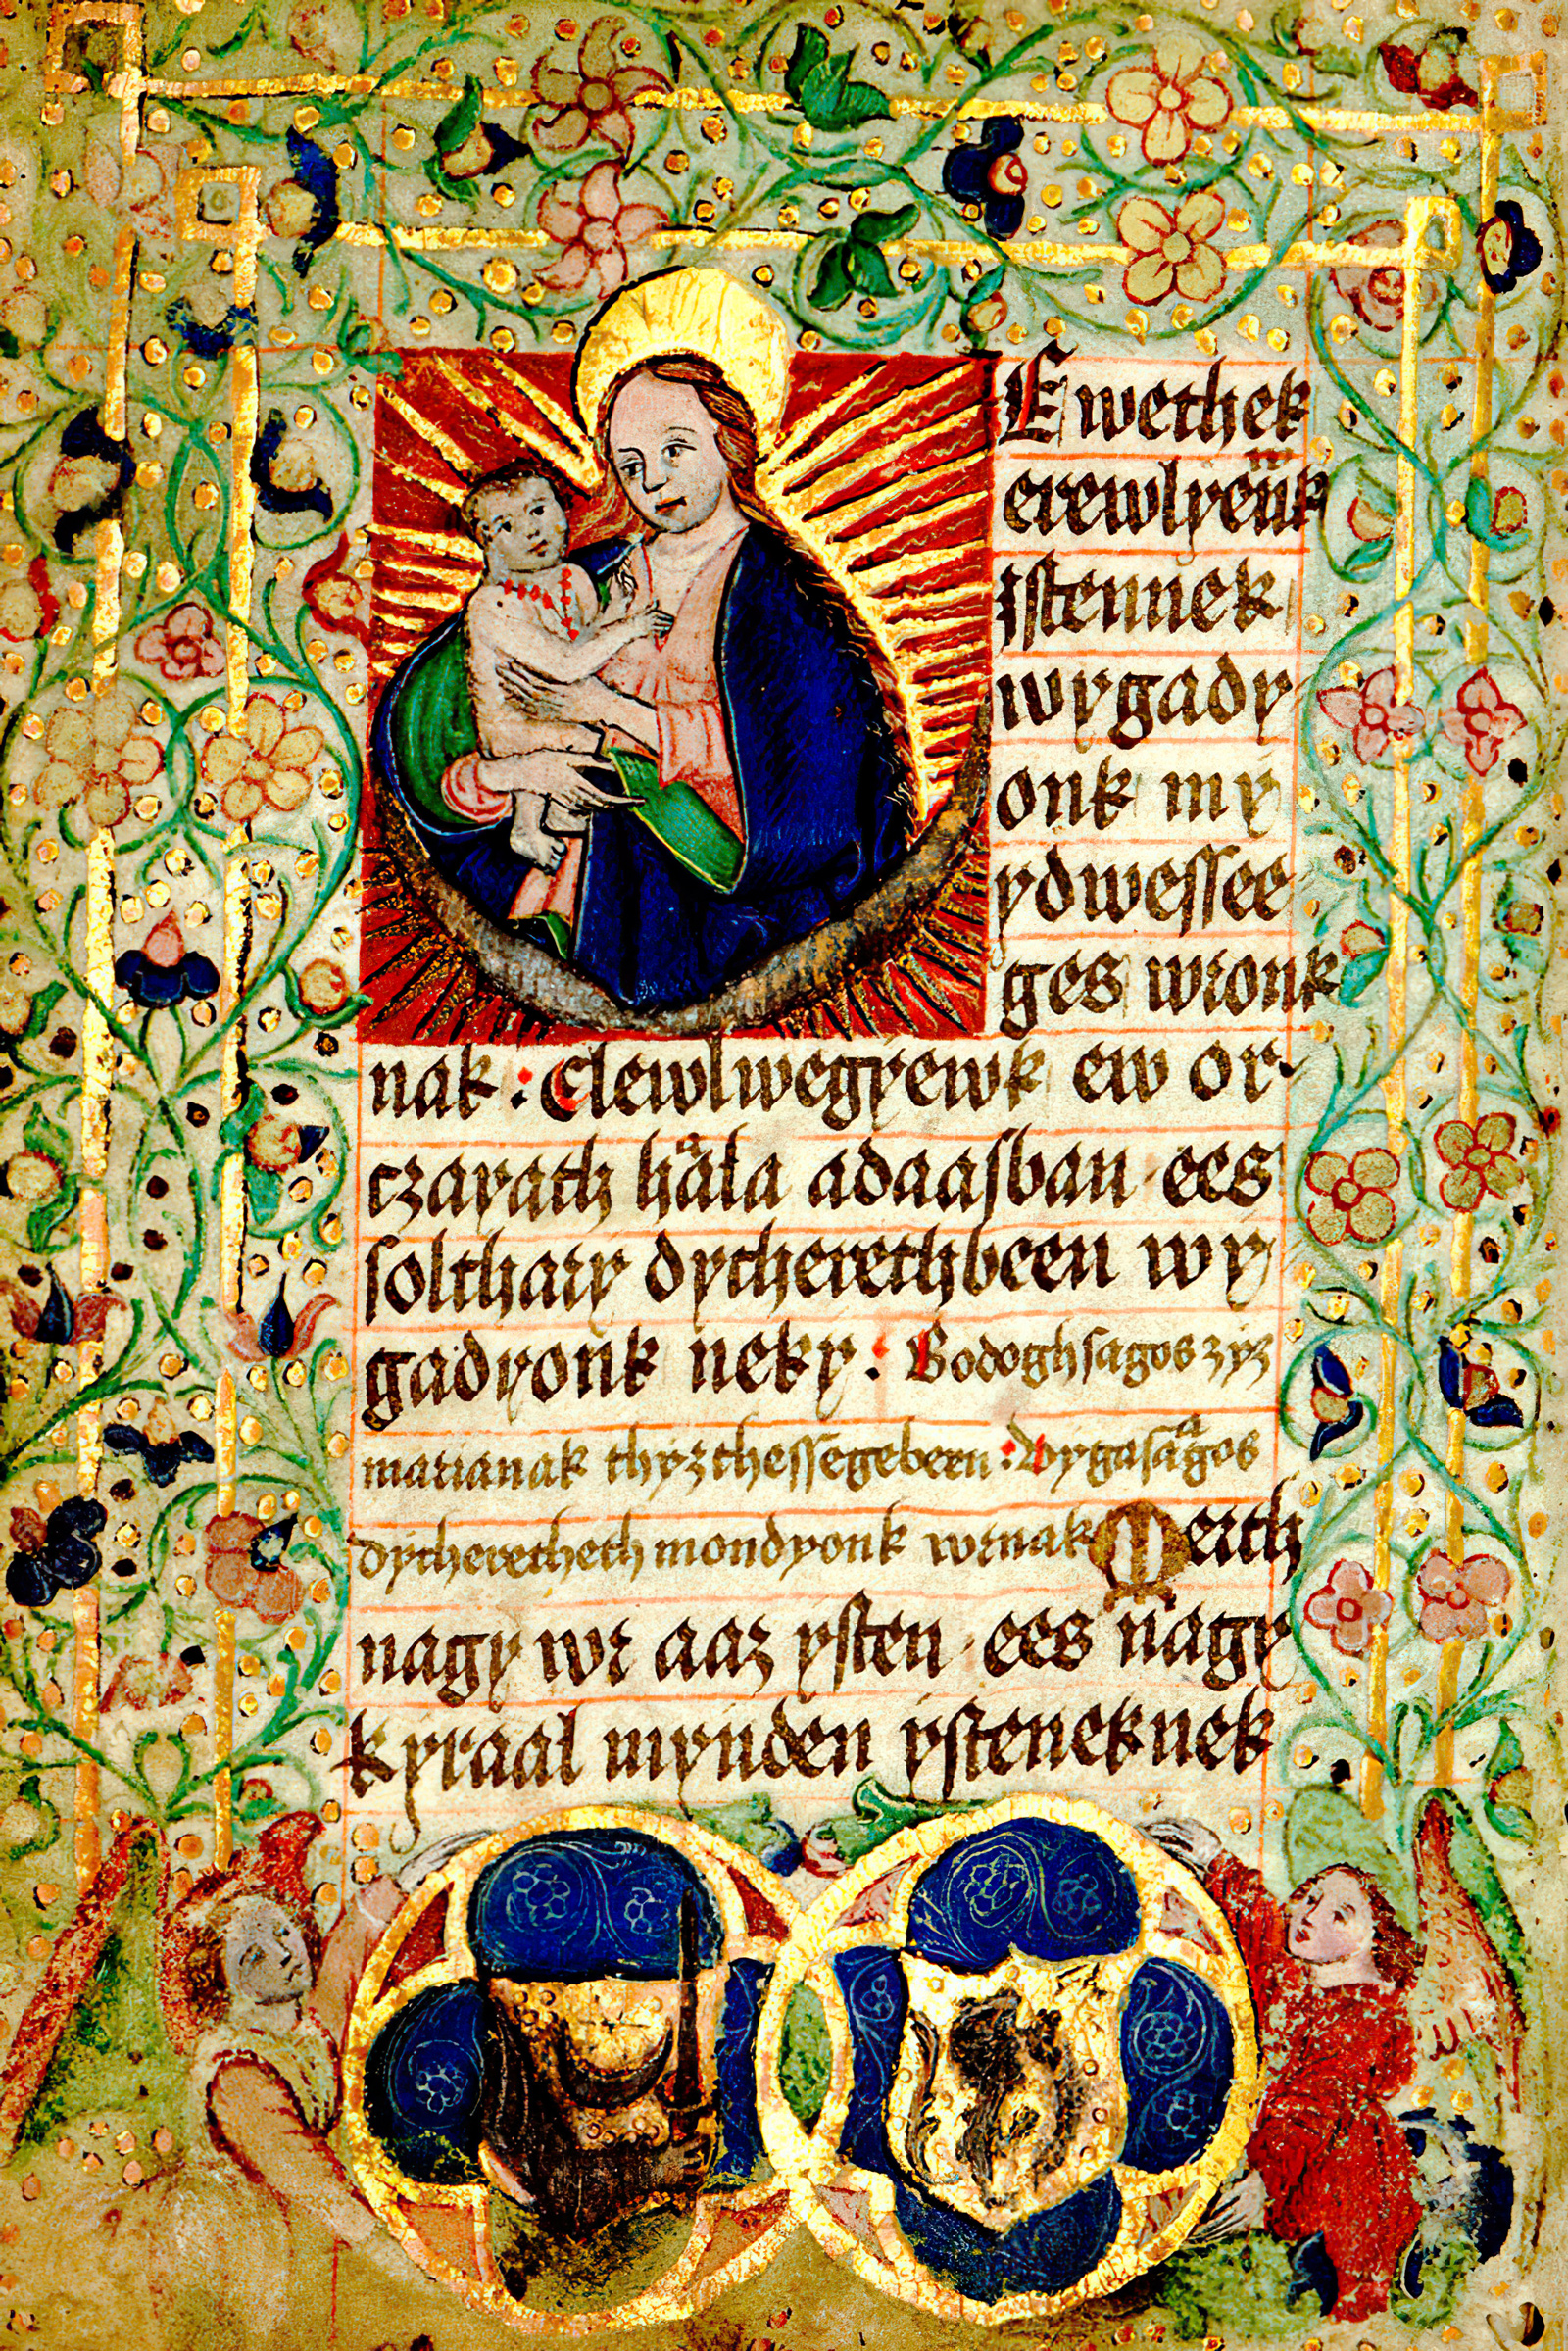 Ewethek
erewlyenk
istennek
wygady
onk my
ydwessee
ges wronk
nak : Elewlwegyewk ew or-
czayath hala adaasban · ees
solthary dytherethbeen wy
gadyonk neky : Bodoghsagos zyz
marianak thyzthessegebeen : Vygasagos
dytheretheth mondyonk wrnak Merth
nagy wr aaz ysten · ees nagy
kyraal mynden ysteneknek